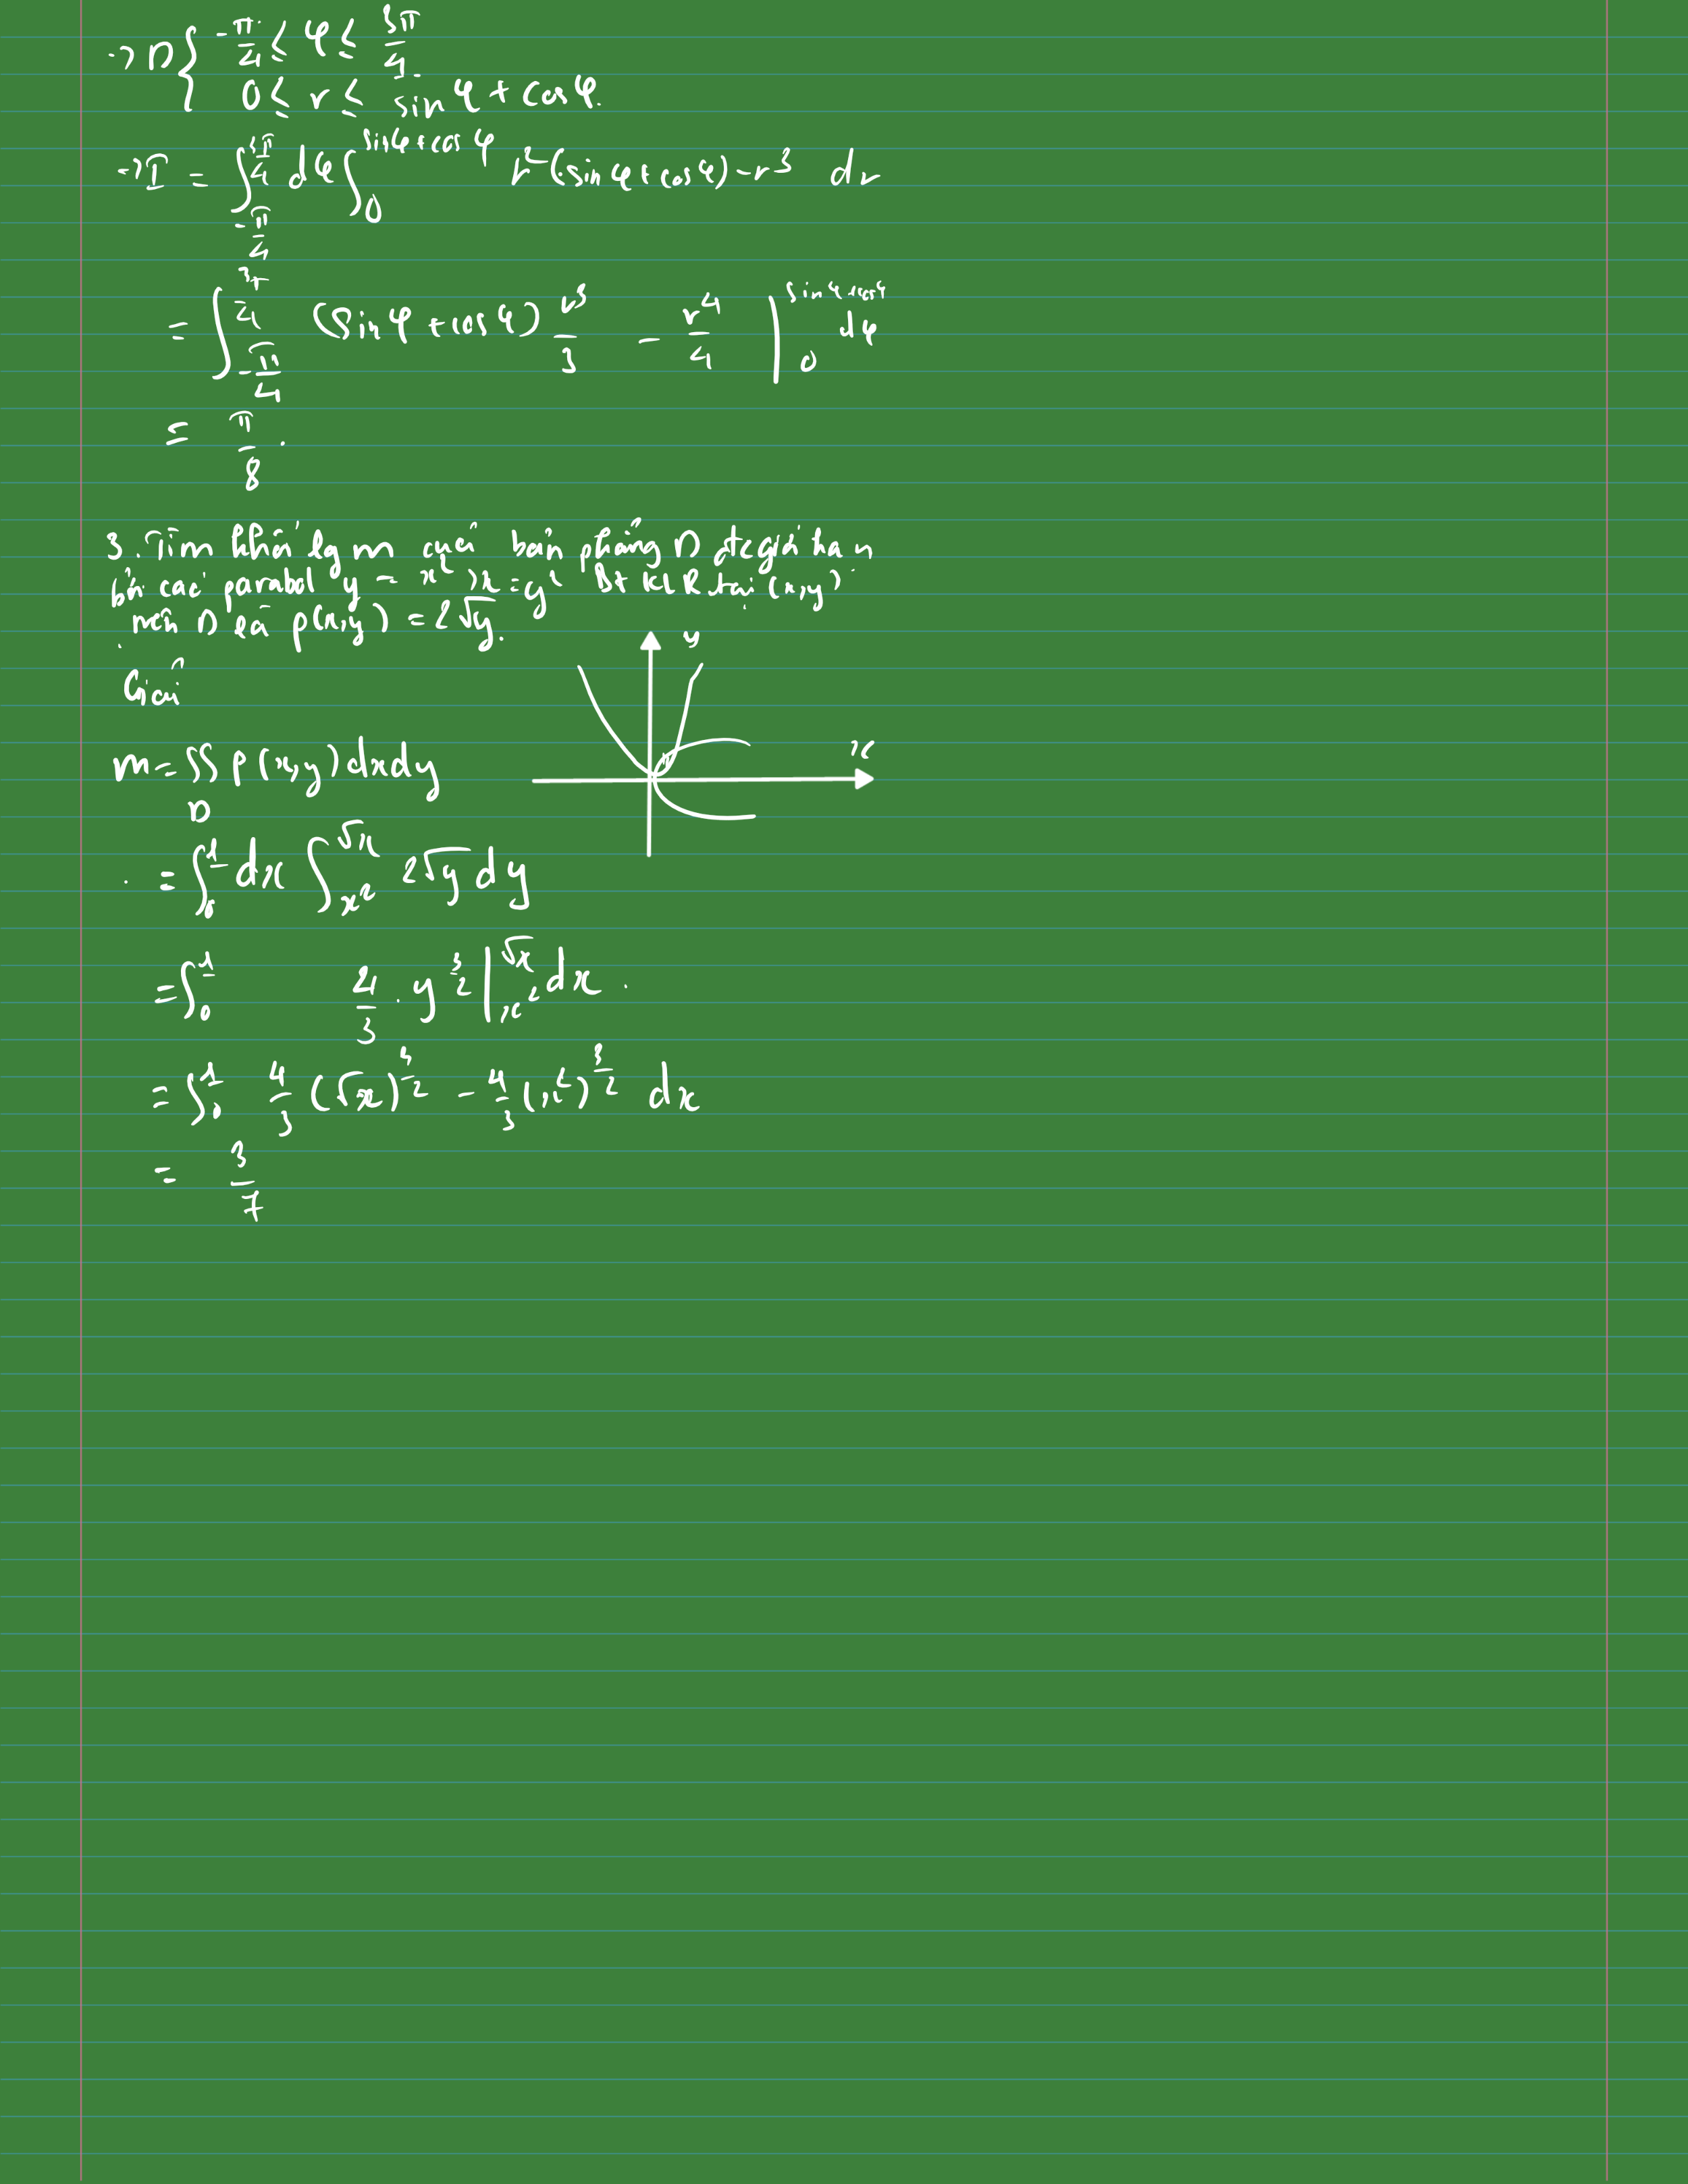 → D { -π/4 ≤ φ ≤ 3π/4
0 ≤ r ≤ sin φ + cos φ.
→ I = ∫_{-π/4}^{3π/4} dφ ∫_0^{sin φ + cos φ} r²(sin φ + cos φ) - r³ dr
= ∫_{-π/4}^{3π/4} (sin φ + cos φ) r³/3 - r⁴/4 |_0^{sin φ + cos φ} dφ
= π/8 .
3. Tìm khối lg m của bản phẳng D đc giới hạn
bởi các parabol y = x², x = y² Bt KLR tại (x,y)
trên D là ρ(x,y) = 2√y.
Giải
y
x
m = ∬_D ρ(x,y) dxdy
= ∫_0^1 dx ∫_{x²}^{√x} 2√y dy
= ∫_0^1 4/3 . y^{3/2} |_{x²}^{√x} dx .
= ∫_0^1 4/3 (√x)^{3/2} - 4/3 (x²)^{3/2} dx
= 3/7